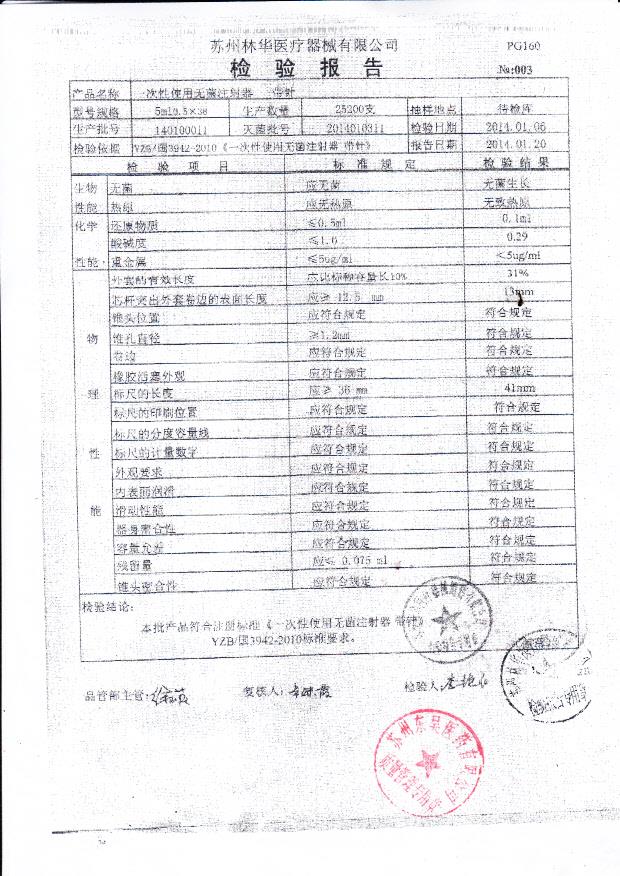 苏州林华医疗器械有限公司 PG160
检验报告 №:003
产品名称 一次性使用无菌注射器 带针
型号规格 5ml0.5×38 生产数量 25200支 抽样地点 待检库
生产批号 140100011 灭菌批号 2014010311 检验日期 2014.01.06
检验依据 YZB/国3942-2010《一次性使用无菌注射器 带针》 报告日期 2014.01.20
检验项目 标准规定 检验结果
生物 无菌 应无菌 无菌生长
性能 热原 应无热原 无致热原
化学 还原物质 ≤0.5ml 0.1ml
酸碱度 ≤1.0 0.29
性能 重金属 ≤5ug/ml <5ug/ml
外套的有效长度 应比标称容量长10% 31%
芯杆突出外套卷边的表面长度 应≥ 12.5 mm 13mm
锥头位置 应符合规定 符合规定
物 锥孔直径 ≥1.2mm 符合规定
卷边 应符合规定 符合规定
橡胶活塞外观 应符合规定 符合规定
理 标尺的长度 应≥ 36 mm 41mm
标尺的印刷位置 应符合规定 符合规定
标尺的分度容量线 应符合规定 符合规定
性 标尺的计量数字 应符合规定 符合规定
外观要求 应符合规定 符合规定
内表面润滑 应符合规定 符合规定
能 滑动性能 应符合规定 符合规定
器身密合性 应符合规定 符合规定
容量允差 应符合规定 符合规定
残留量 应≤ 0.075 ml 符合规定
锥头密合性 应符合规定 符合规定
检验结论:
本批产品符合注册标准《一次性使用无菌注射器 带针》
YZB/国3942-2010标准要求。
品管部主管: 复核人: 检验人
苏州东吴医药有限公司
质量管理专用章